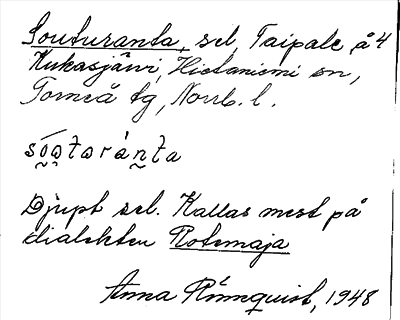 Souturánta, sel, Taipale å 4
Kukasjärvi, Hietaniemi sn,
Torneå tg, Norrb. l.
so̯o̯tarántа
Djupt sel. Kallas mest på
dialekten Rotemaja
Anna Rönnquist, 1948